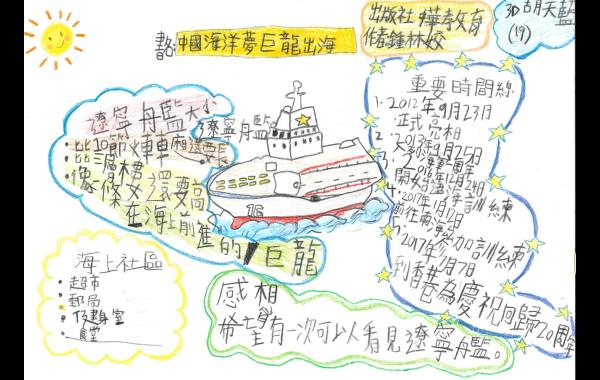 書名:中國海洋夢巨龍出海
出版社:
教育
作者鍾林姣
3D 胡天藍
(19)
遼寧艦大小
•比10節火車廂還要長
•比三層樓還要高
•像條
在海上前進的巨龍
遼寧艦
16
重要時間線
1. 2012年9月23日
正式亮相
2. 2013年9月25日
3. 2016年12月24日
開始出海訓練
4. 2017年1月2日
前往南海參加訓練
5. 2017年7月7日
到香港為慶祝回歸20周年
海上社區
•超市
•郵局
•健身室
•食堂
感想
希望有一次可以看見遼寧艦。